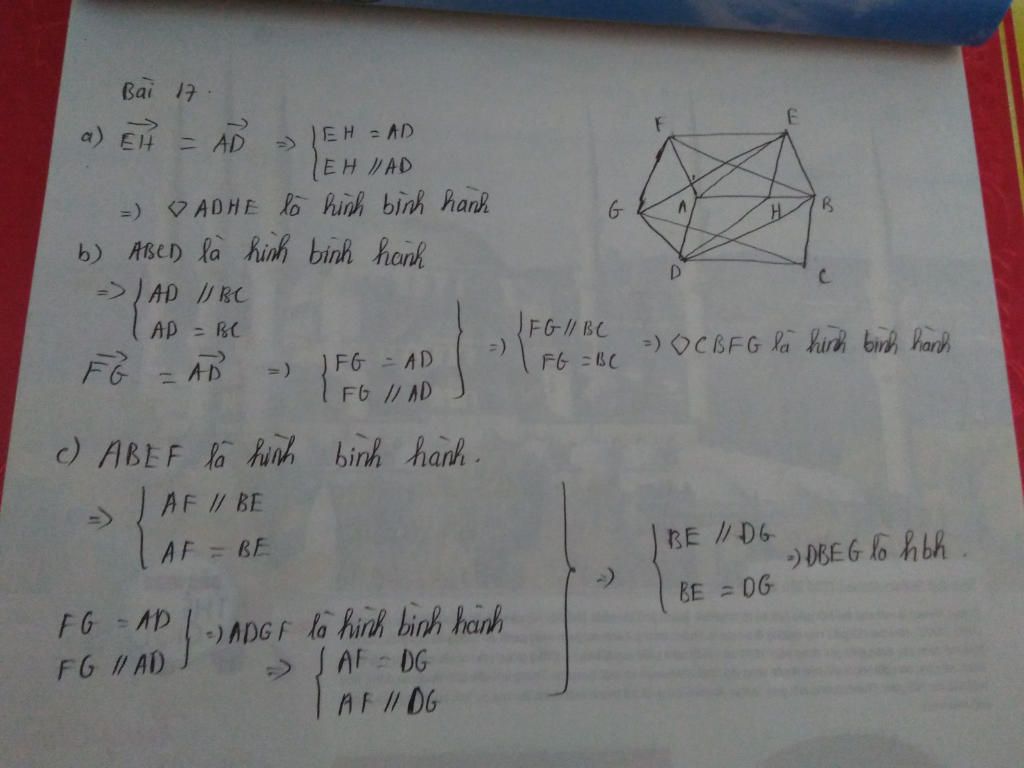 Bài 17.
a) $\overrightarrow{EH} = \overrightarrow{AD}$ => { EH = AD
EH // AD
=> ◇ ADHE là hình bình hành
b) ABCD là hình bình hành
=> { AD // BC
AD = BC
$\overrightarrow{FG} = \overrightarrow{AD}$ => { FG = AD
FG // AD
} => { FG // BC
FG = BC
=> ◇ CBFG là hình bình hành
c) ABEF là hình bình hành.
=> { AF // BE
AF = BE
FG = AD
FG // AD
} => ADGF là hình bình hành
=> { AF = DG
AF // DG
} => { BE // DG
BE = DG
=> DBEG là hbh.
F
E
G
A
H
B
D
C